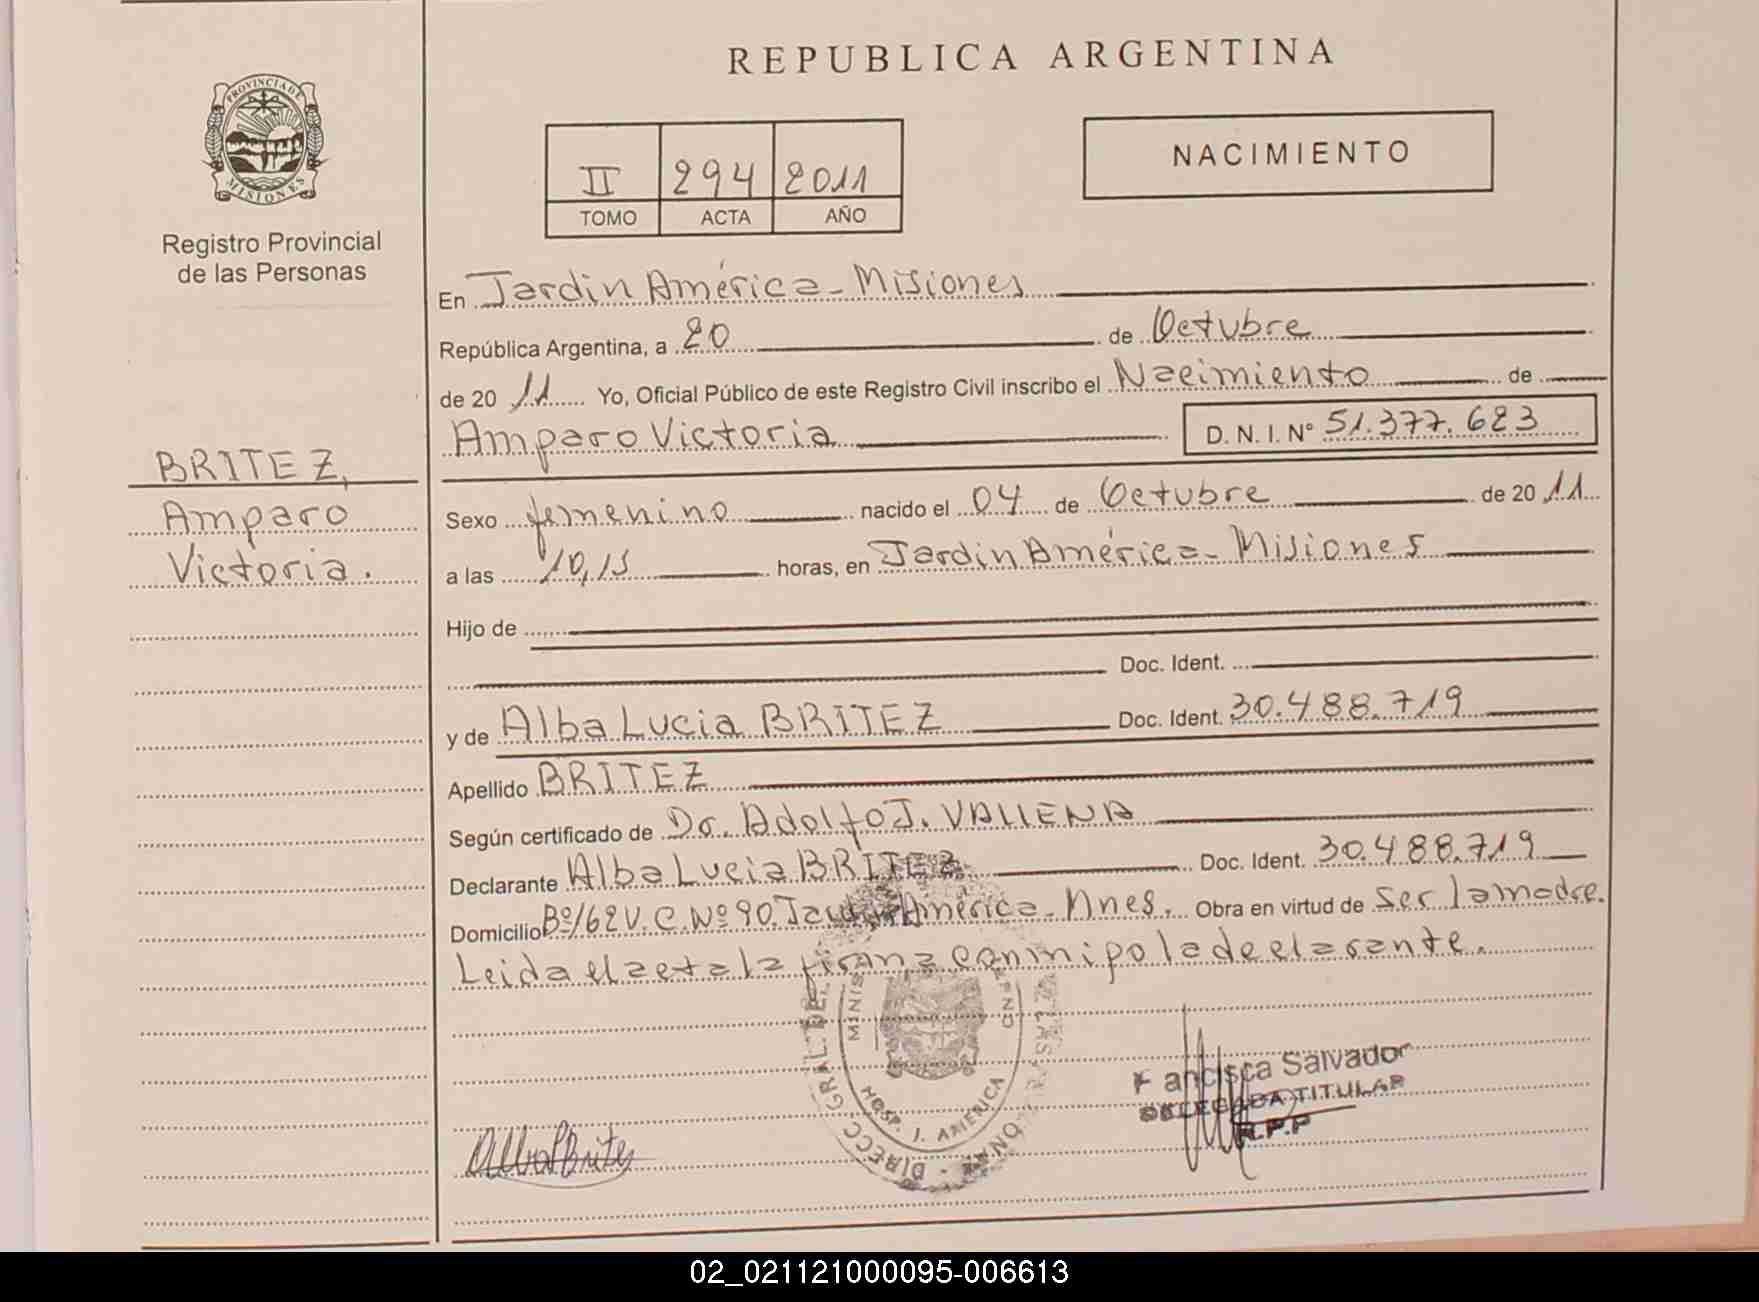 REPUBLICA ARGENTINA
PROVINCIA DE MISIONES
Registro Provincial
de las Personas
II 294 2011
TOMO ACTA AÑO
NACIMIENTO
En Jardin América - Misiones
República Argentina, a 20 de Octubre
de 20 11 Yo, Oficial Público de este Registro Civil inscribo el Nacimiento de
Amparo Victoria D. N. I. N° 51.377.623
BRITEZ,
Amparo
Victoria.
Sexo femenino nacido el 04 de Octubre de 20 11
a las 10,15 horas, en Jardin América - Misiones
Hijo de
Doc. Ident.
y de Alba Lucia BRITEZ Doc. Ident. 30.488.719
Apellido BRITEZ
Según certificado de Dr. Adolfo J. VALLENA
Declarante Alba Lucia BRITEZ Doc. Ident. 30.488.719
Domicilio Bº/62 V. C. Nº 90. Jardin América - Mnes. Obra en virtud de Ser la madre.
Leida el acta la firma conmipo la declarante.
DIRECC. GRAL. DEL
MINIS
HOSP. J. AMERICA
Alba L Britez
Francisca Salvador
DELEGADA TITULAR
R.P.P
02_021121000095-006613